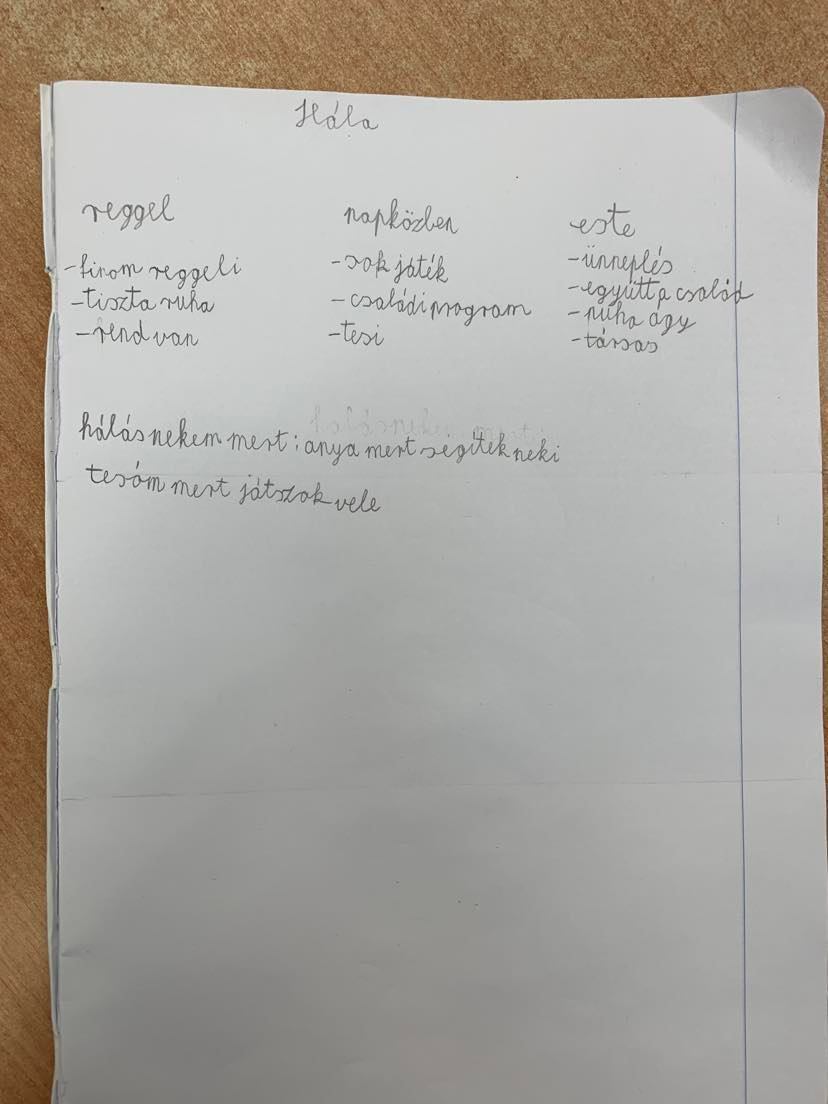 Hála
reggel napközben este
-finom reggeli
-tiszta ruha
-rend van
-sok játék
-családi program
-tesi
-ünneplés
-együtt a család
-puha ágy
-társas
hálás nekem mert: anya mert segítek neki
tesóm mert játszok vele